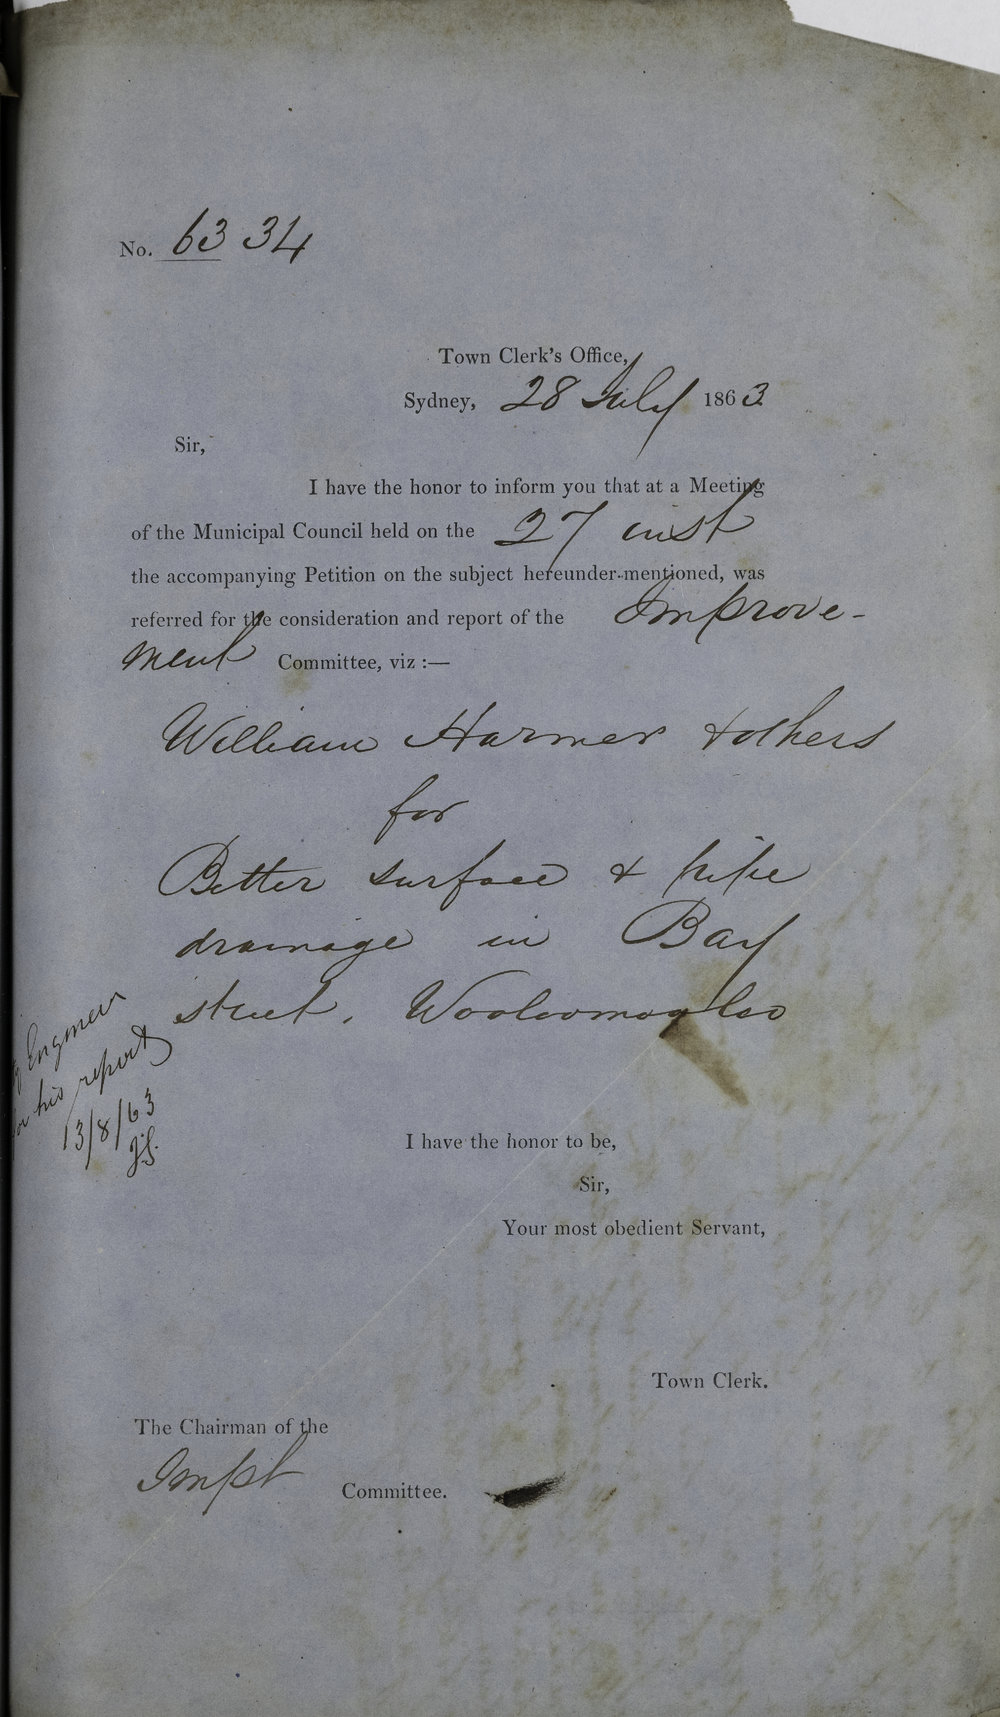 No. 63 34
Town Clerk's Office,
Sydney, 28 July 1863
Sir,
I have the honor to inform you that at a Meeting
of the Municipal Council held on the 27 inst
the accompanying Petition on the subject hereunder-mentioned, was
referred for the consideration and report of the Improve-
ment Committee, viz :—
William Harmer & others
for
Better surface & pipe
drainage in Bay
street, Wooloomooloo
Engineer
his report
13/8/63
J.S.
I have the honor to be,
Sir,
Your most obedient Servant,
Town Clerk.
The Chairman of the
Impt Committee.